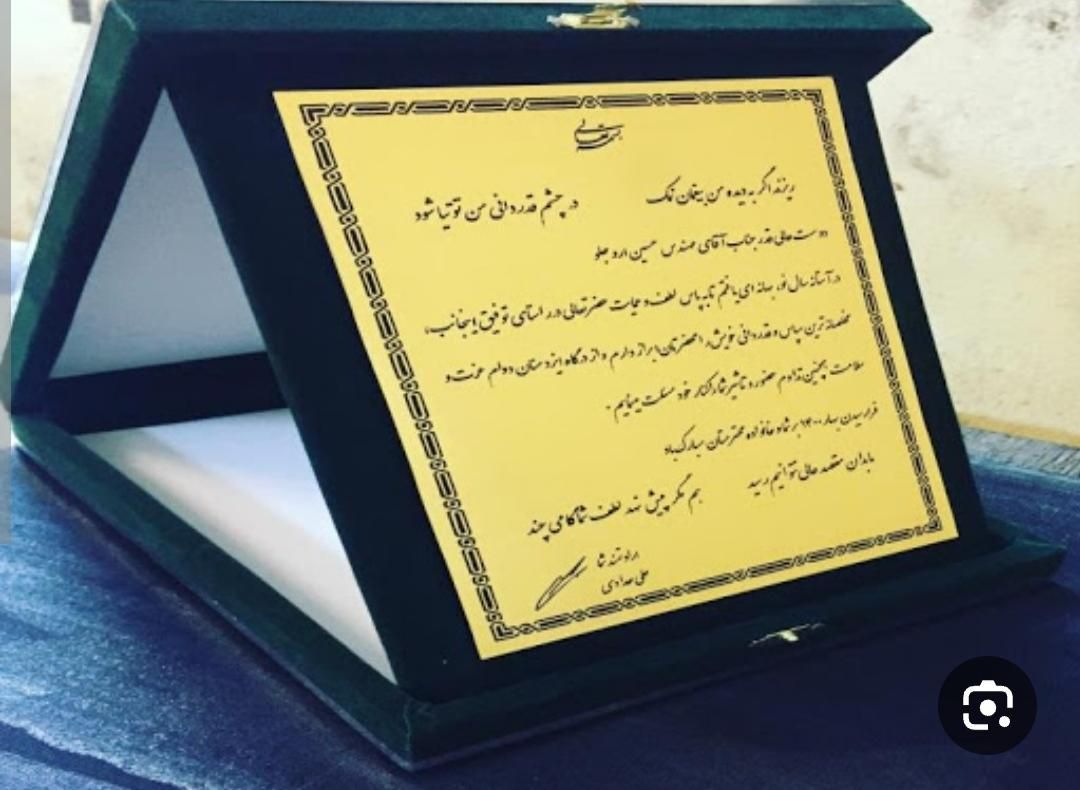 بسمه تعالی
ریزند اگر به دیده من بیغمان نمک در چشم قدردانی من توتیا شود
دوست عالی قدر جناب آقای مهندس حسین
در آستانه سال نو، بهانه ای یافتم تا به پاس لطف و عنایت حضرتعالی در راستای توفیق اینجانب،
مخلصانه ترین سپاس و قدردانی خویش را محضرتان ابراز دارم و از درگاه ایزد منان دوام عزت و
سلامت و همچنین تداوم حضور و تاثیرگذار خود مسئلت مینمایم.
فرا رسیدن بهار ۱۴۰۰ بر شما و خانواده محترمتان مبارک باد
ما بدان مقصد عالی نتوانیم رسید هم مگر پیش نهد لطف شما گامی چند
ارادتمند شما
علی